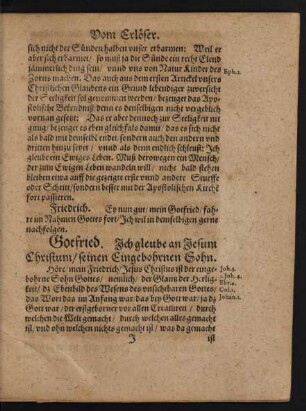 Vom Erlöser.
sich nicht der Sünden halben vnser erbarmen; Weil er
aber sich erbarmet / so muß ja die Sünde ein recht Elend
jämmerlich ding sein / vnnd vns von Natur Kinder des
Zorns machen. Das auch aus dem ersten Artickel vnsers
Christlichen Glaubens ein Grund lebendiger zuversicht
der Seeligkeit sol genommen werden / bezeuget das Apo-
stolische Bekendnuß denn es demselbigen nicht vergeblich
vornan gesetzt: Das es aber dennoch zur Seeligkeit nit
gnug / bezeuget es eben gleichfals damit / das es sich nicht
als bald mit demselben endet / sondern auch den andern vnd
dritten hinzu setzet / vnnd als denn endlich schleust: Ich
gleube ein Ewiges Leben. Muß derowegen ein Mensch /
der zum Ewigen Leben wandeln will / nicht bald stehen
bleiben etwa auff die gezeigte erste vnnd andere Stueffe
oder Schritt / sondern besser mit der Apostolischen Kirche
fort passieren.
Friedrich. Ey nun gut / mein Gotfried / fah-
re im Nahmen Gottes fort / Ich wil in demselbigen gerne
nachfolgen.
Gotfried. Ich gleube an Jesum
Christum / seinen Eingebohrnen Sohn.
Höre / mein Friedrich / Jesus Christus ist der einge-
bohrne Sohn Gottes / nemlich / der Glantz der Herlig-
keit / dz Ebenbild des Wesens des vnsichtbaren Gottes /
das Wort das im Anfang war / das bey Gott war / ja dz
Gott war / der erstgeborner vor allen Creaturen / durch
welchen die Welt gemacht / durch welchen alles gemacht
ist / vnd ohn welchen nichts gemacht ist / was da gemacht
J ist
Eph. 2.
Joh. 3.
1. Joh. 4.
Ebr. 1.
Col. 1.
Johan. 1.